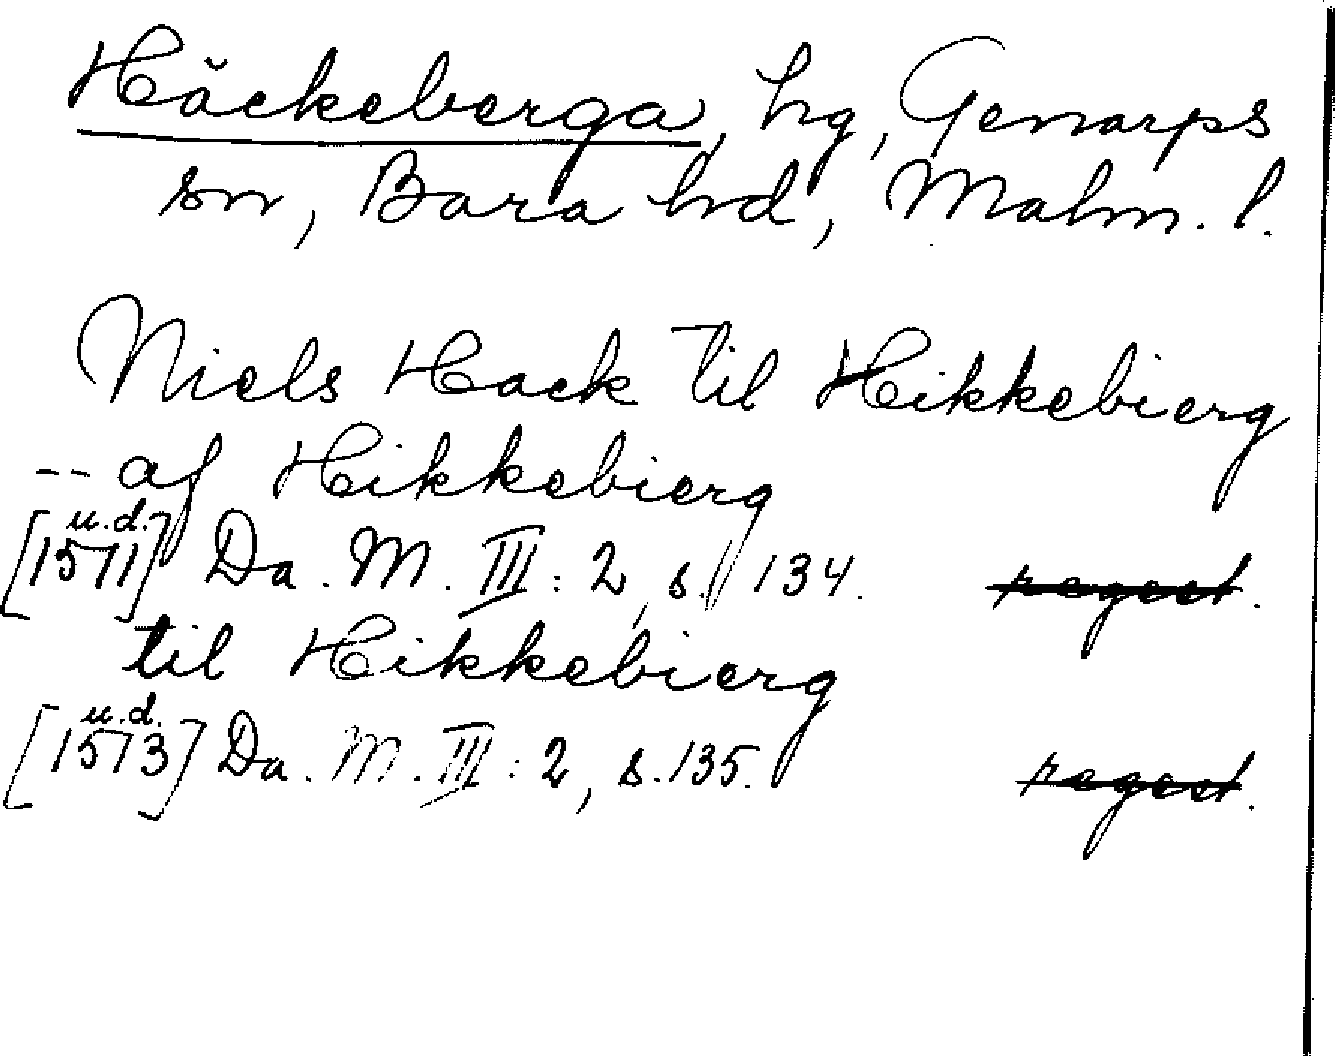 Häckeberga, hg, Genarps
sn, Bara hd, Malm. l.
Niels Hack til Hikkebierg
-- af Hikkebierg
[1571] u.d. Da. M. III: 2, s. 134. regest.
til Hikkebierg
[1573] u.d. Da. M. III: 2, s. 135. regest.